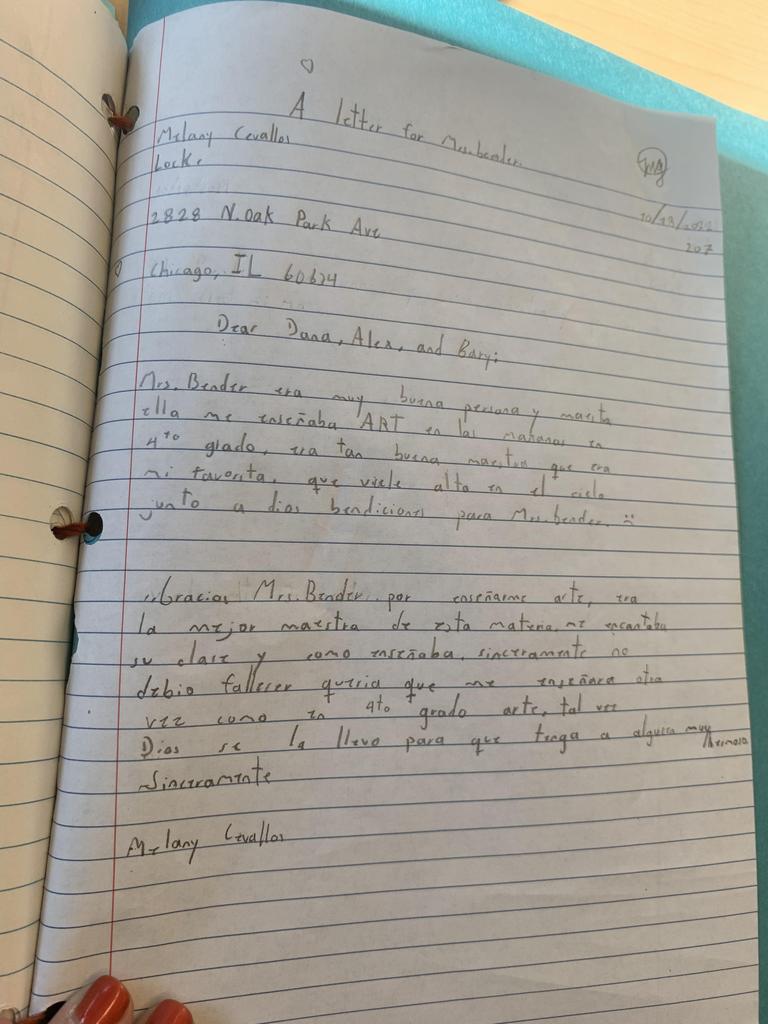 A letter for Mrs.bender.
Melany Cevallos
Locke
10/13/2022
2828 N.oak Park Ave
207
Chicago, IL 60634
Dear Dana, Alex, and Bary:
Mrs. Bender era muy buena persona y maestra
ella me enseñaba ART en las mañanas en
4to grado, era tan buena maestra que era
mi favorita, que vuele alto en el cielo
junto a dios bendiciones para Mrs.bender.
Gracias Mrs.Bender por enseñarme arte, era
la mejor maestra de esta materia, me encantaba
su clase y como enseñaba, sinceramente no
debio fallecer queria que me enseñara otra
vez como en 4to grado arte, tal vez
Dios se la llevo para que tenga a alguien muy hermosa
Sinceramente
Melany Cevallos